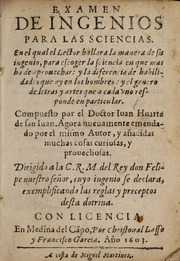 EXAMEN
DE INGENIOS
PARA LAS SCIENCIAS.
En el qual el Lector hallara la manera de su
ingenio, para escoger la sciencia en que mas
ha de aprouechar: y la diferencia de habili-
dades que ay en los hombres: y el genero
de letras y artes que a cada vno res-
ponde en particular.
Compuesto por el Doctor Iuan Huarte
de san Iuan. Agora nueuamente enmenda-
do por el mismo Autor, y añadidas
muchas cosas curiosas, y
prouechosas.
Dirigido a la C. R. M. del Rey don Feli-
pe nuestro señor, cuyo ingenio se declara,
exemplificando las reglas y preceptos
desta dotrina.
CON LICENCIA
En Medina del Cãpo, Por Christoual Lasso
y Francisco Garcia. Año 1603.
A costa de Miguel Martinez.